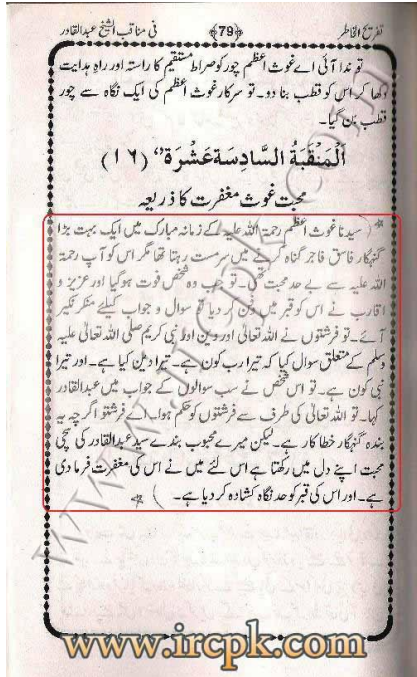 تفریح الخاطر ﴿79﴾ فی مناقب الشیخ عبدالقادر
تو ندا آئی اے غوث اعظم چور کو صراط مستقیم کا راستہ اور راہ ہدایت
دکھا کر اس کو قطب بنا دو۔ تو سرکار غوث اعظم کی ایک نگاہ سے چور
قطب بن گیا۔
اَلْمَنْقَبَةُ السَّادِسَةَ عَشْرَةَ‘‘ (۱۶)
محبت غوث مغفرت کا ذریعہ
( سیدنا غوث اعظم رحمۃ اللہ علیہ کے زمانہ مبارک میں ایک بہت بڑا
گنہگار فاسق فاجر گناہ کرنے میں سرمست رہتا تھا مگر اس کو آپ رحمۃ
اللہ علیہ سے بے حد محبت تھی۔ تو جب وہ شخص فوت ہو گیا اور عزیز و
اقارب نے اس کو قبر میں دفن کر دیا تو سوال و جواب کیلئے منکر نکیر
آئے۔ تو فرشتوں نے اللہ تعالیٰ اور دین اور نبی کریم صلی اللہ تعالیٰ علیہ
وسلم کے متعلق سوال کیا کہ تیرا رب کون ہے۔ تیرا دین کیا ہے۔ اور تیرا
نبی کون ہے۔ تو اس شخص نے سب سوالوں کے جواب میں عبدالقادر
کہا۔ تو اللہ تعالیٰ کی طرف سے فرشتوں کو حکم ہوا۔ اے فرشتو اگرچہ یہ
بندہ گنہگار خطا کار ہے۔ لیکن میرے محبوب بندے سید عبدالقادر کی سچی
محبت اپنے دل میں رکھتا ہے اس لئے میں نے اس کی مغفرت فرما دی
ہے۔ اور اس کی قبر کو حد نگاہ کشادہ کر دیا ہے۔ )
www.ircpk.com
www.ircpk.com